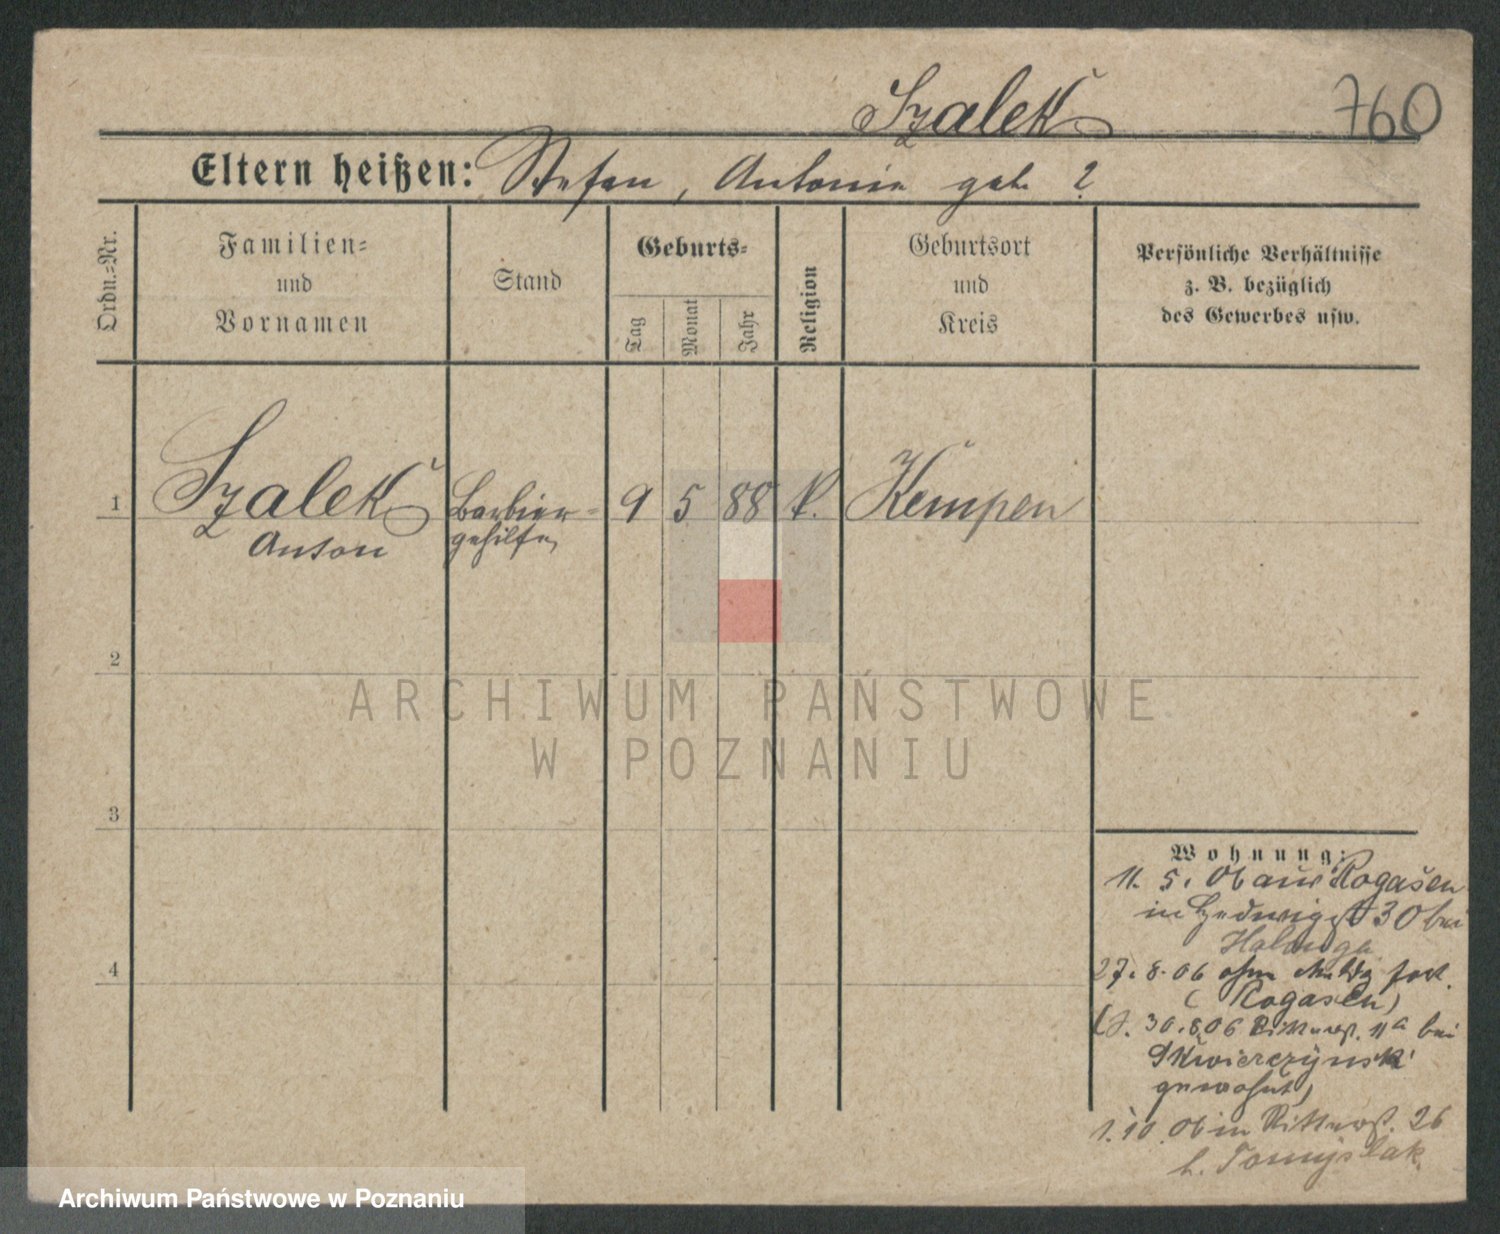 Szalek
760
Eltern heißen: Stefan, Antonie geb. ?
Ordn.=Nr.
Familien=
und
Vornamen
Stand
Geburts=
Tag
Monat
Jahr
Religion
Geburtsort
und
Kreis
Persönliche Verhältnisse
z. B. bezüglich
des Gewerbes usw.
1 Szalek Barbier= 9 5 88 k. Kempen
Anton gehilfe
2
3
4
ARCHIWUM PAŃSTWOWE
W POZNANIU
Wohnung:
11. 5. 06 aus Rogasen
in Hedwigst 30 bei
27. 8. 06 ohne Meldg fort.
(Rogasen)
30.8.06 Ritterst. 11a bei
Skwierczynski
gewohnt)
1. 10. 06 in Ritterst. 26
b. Tomyslak
Archiwum Państwowe w Poznaniu